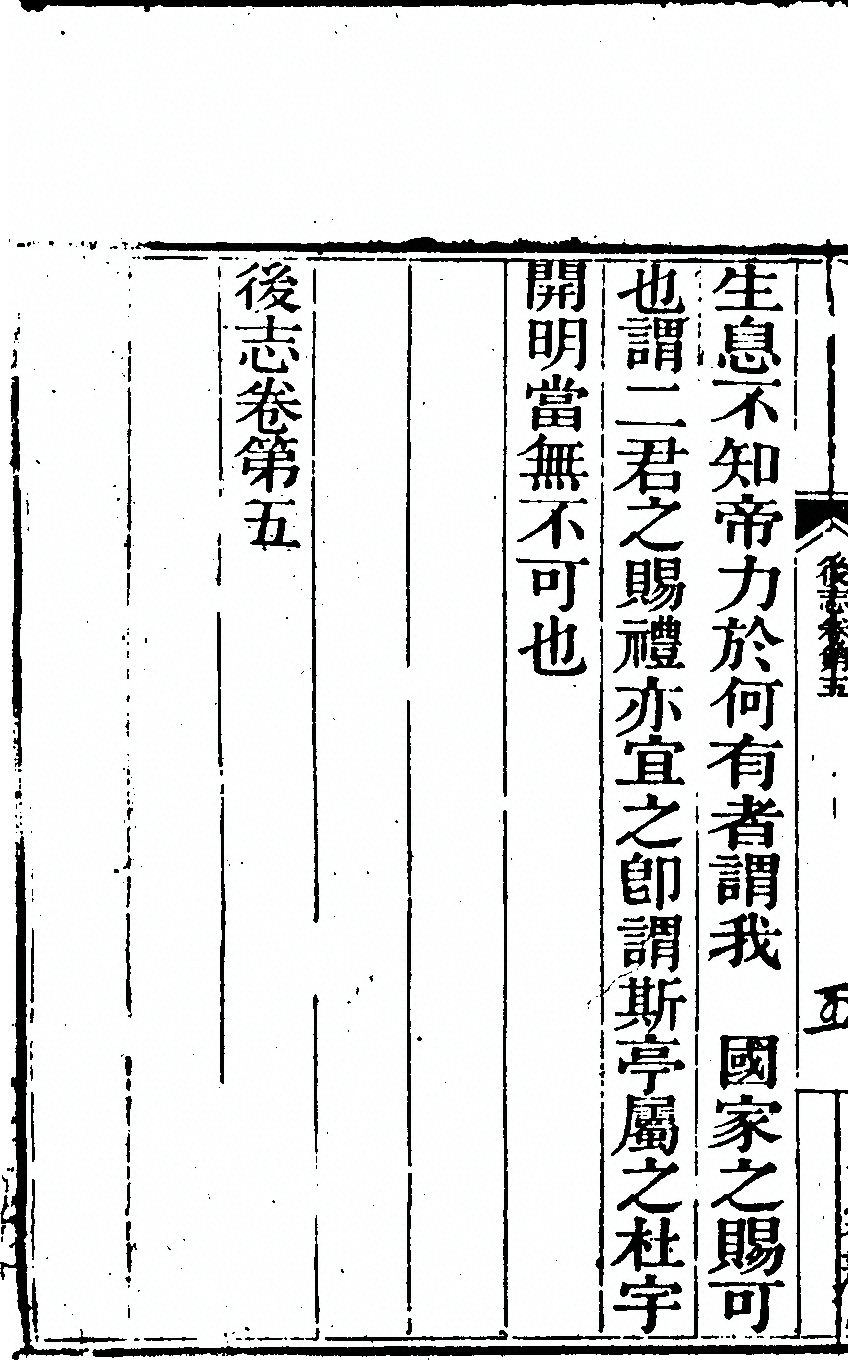 後志卷第五
生息不知帝力於何有者謂我　國家之賜可
也謂二君之賜禮亦宜之卽謂斯亭屬之杜宇
開明當無不可也
後志卷第五